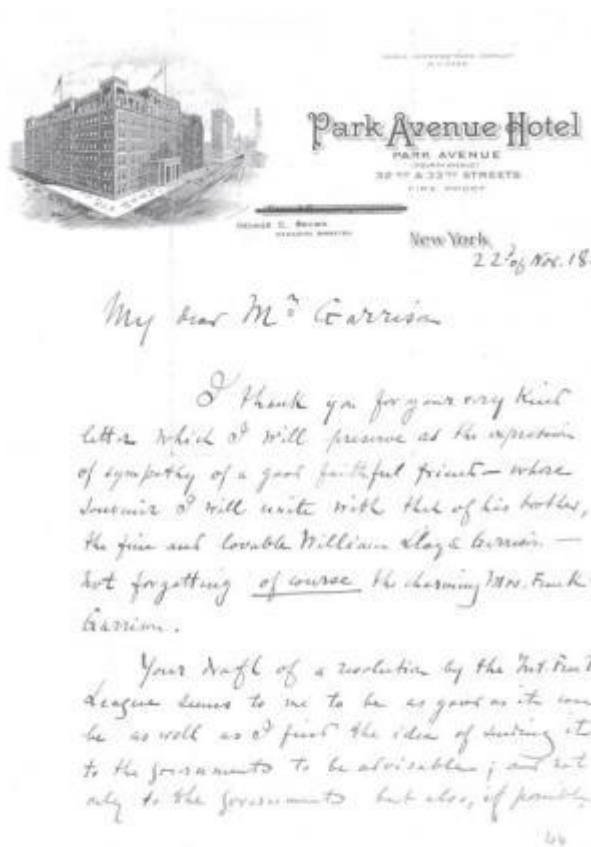 Park Avenue Hotel
PARK AVENUE
(FOURTH AVENUE)
32ND & 33RD STREETS
FIRE PROOF
GEORGE C. BROWN
New York,
22d of Nov. 18
My dear Mr Garrison
I thank you for your very kind
letter which I will preserve as the expression
of sympathy of a good faithful friend — whose
souvenir I will unite with that of his brother,
the fine and lovable William Lloyd Garrison —
not forgetting of course the charming Mrs. Frank
Garrison.
Your draft of a resolution by the Int. Free
League seems to me to be as good as it can
be as well as I find the idea of sending it
to the governments to be advisable; and not
only to the governments but also, if possible,